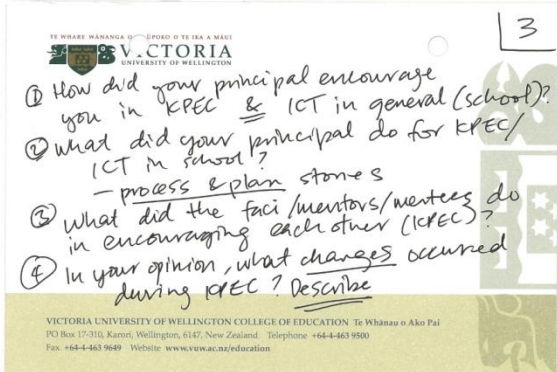 3
TE WHARE WĀNANGA O TE ŪPOKO O TE IKA A MĀUI
VICTORIA
UNIVERSITY OF WELLINGTON
① How did your principal encourage
you in KPEC & ICT in general (school)?
② What did your principal do for KPEC/
ICT in school?
- process & plan stories
③ What did the faci/mentors/mentees do
in encouraging each other (KPEC)?
④ In your opinion, what changes occurred
during KPEC? Describe
VICTORIA UNIVERSITY OF WELLINGTON COLLEGE OF EDUCATION Te Whānau o Ako Pai
PO Box 17-310, Karori, Wellington, 6147, New Zealand Telephone +64-4-463 9500
Fax +64-4-463 9649 Website www.vuw.ac.nz/education